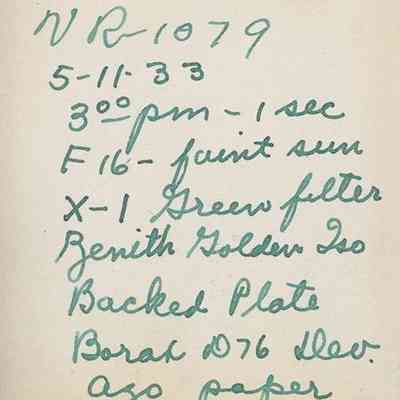 NR-1079
5-11-33
3⁰⁰ pm - 1 sec
F 16 - faint sun
X-1 Green filter
Zenith Golden Iso
Backed Plate
Borax D76 Dev.
Azo paper